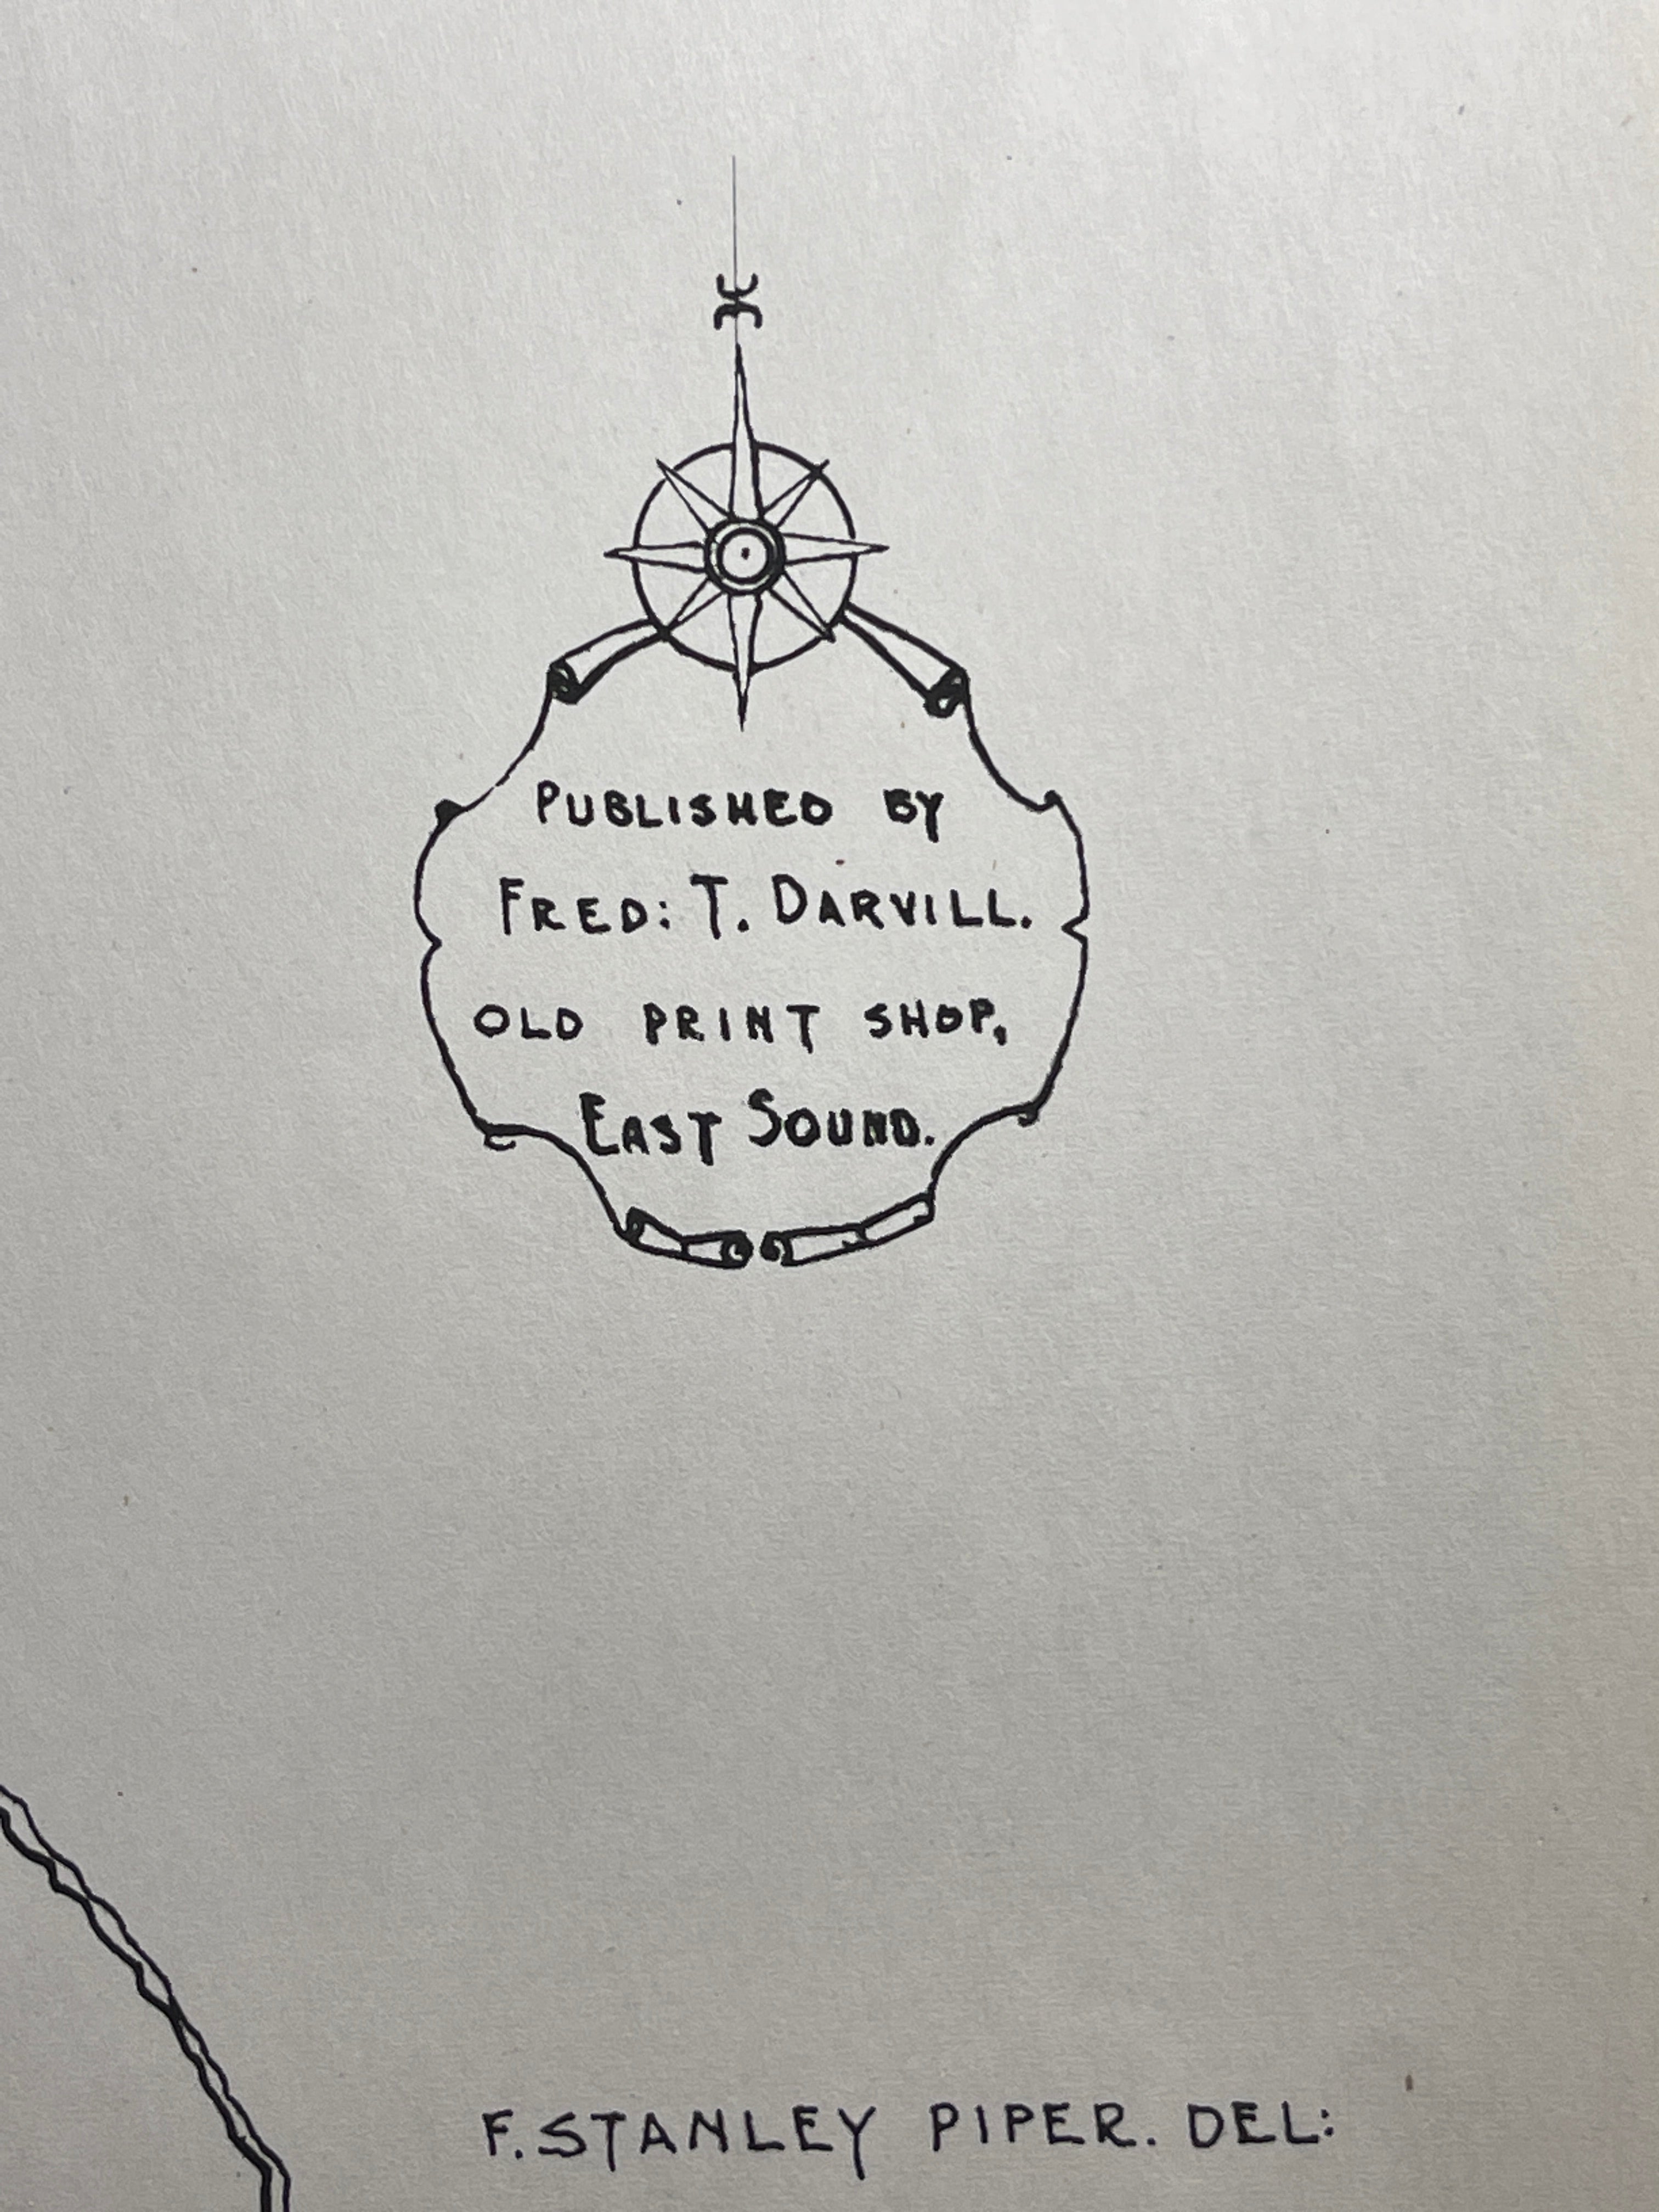 PUBLISHED BY
FRED: T. DARVILL.
OLD PRINT SHOP,
EAST SOUND.
F. STANLEY PIPER. DEL: